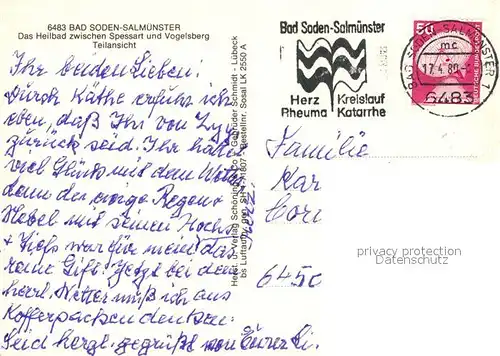 6483 BAD SODEN-SALMÜNSTER
Das Heilbad zwischen Spessart und Vogelsberg
Teilansicht
Ihr beiden Lieben!
Durch Käthe erfuhr ich
eben, daß Ihr von
zurück seid. Ihr
viel Glück mit dem
denn der ewige Regen +
Nebel mit seinen Hochs
+ Tiefs war für mein
reine Gift. Jetzt bei dem
herrl. Wetter muß ich ans
Kofferpacken denken.
Seid herzl. gegrüßt von
Herst. u. Verlag Schöning & Co + Gebrüder Schmidt - Lübeck
Bestellnr. Sosal LK 2550 A
Bad Soden-Salmünster
Herz Kreislauf
Rheuma Katarrhe
50
BAD SODEN-SALMÜNSTER 1
mc
17.4.80
6483
Familie
Kar
Cori
6450
privacy protection
Datenschutz